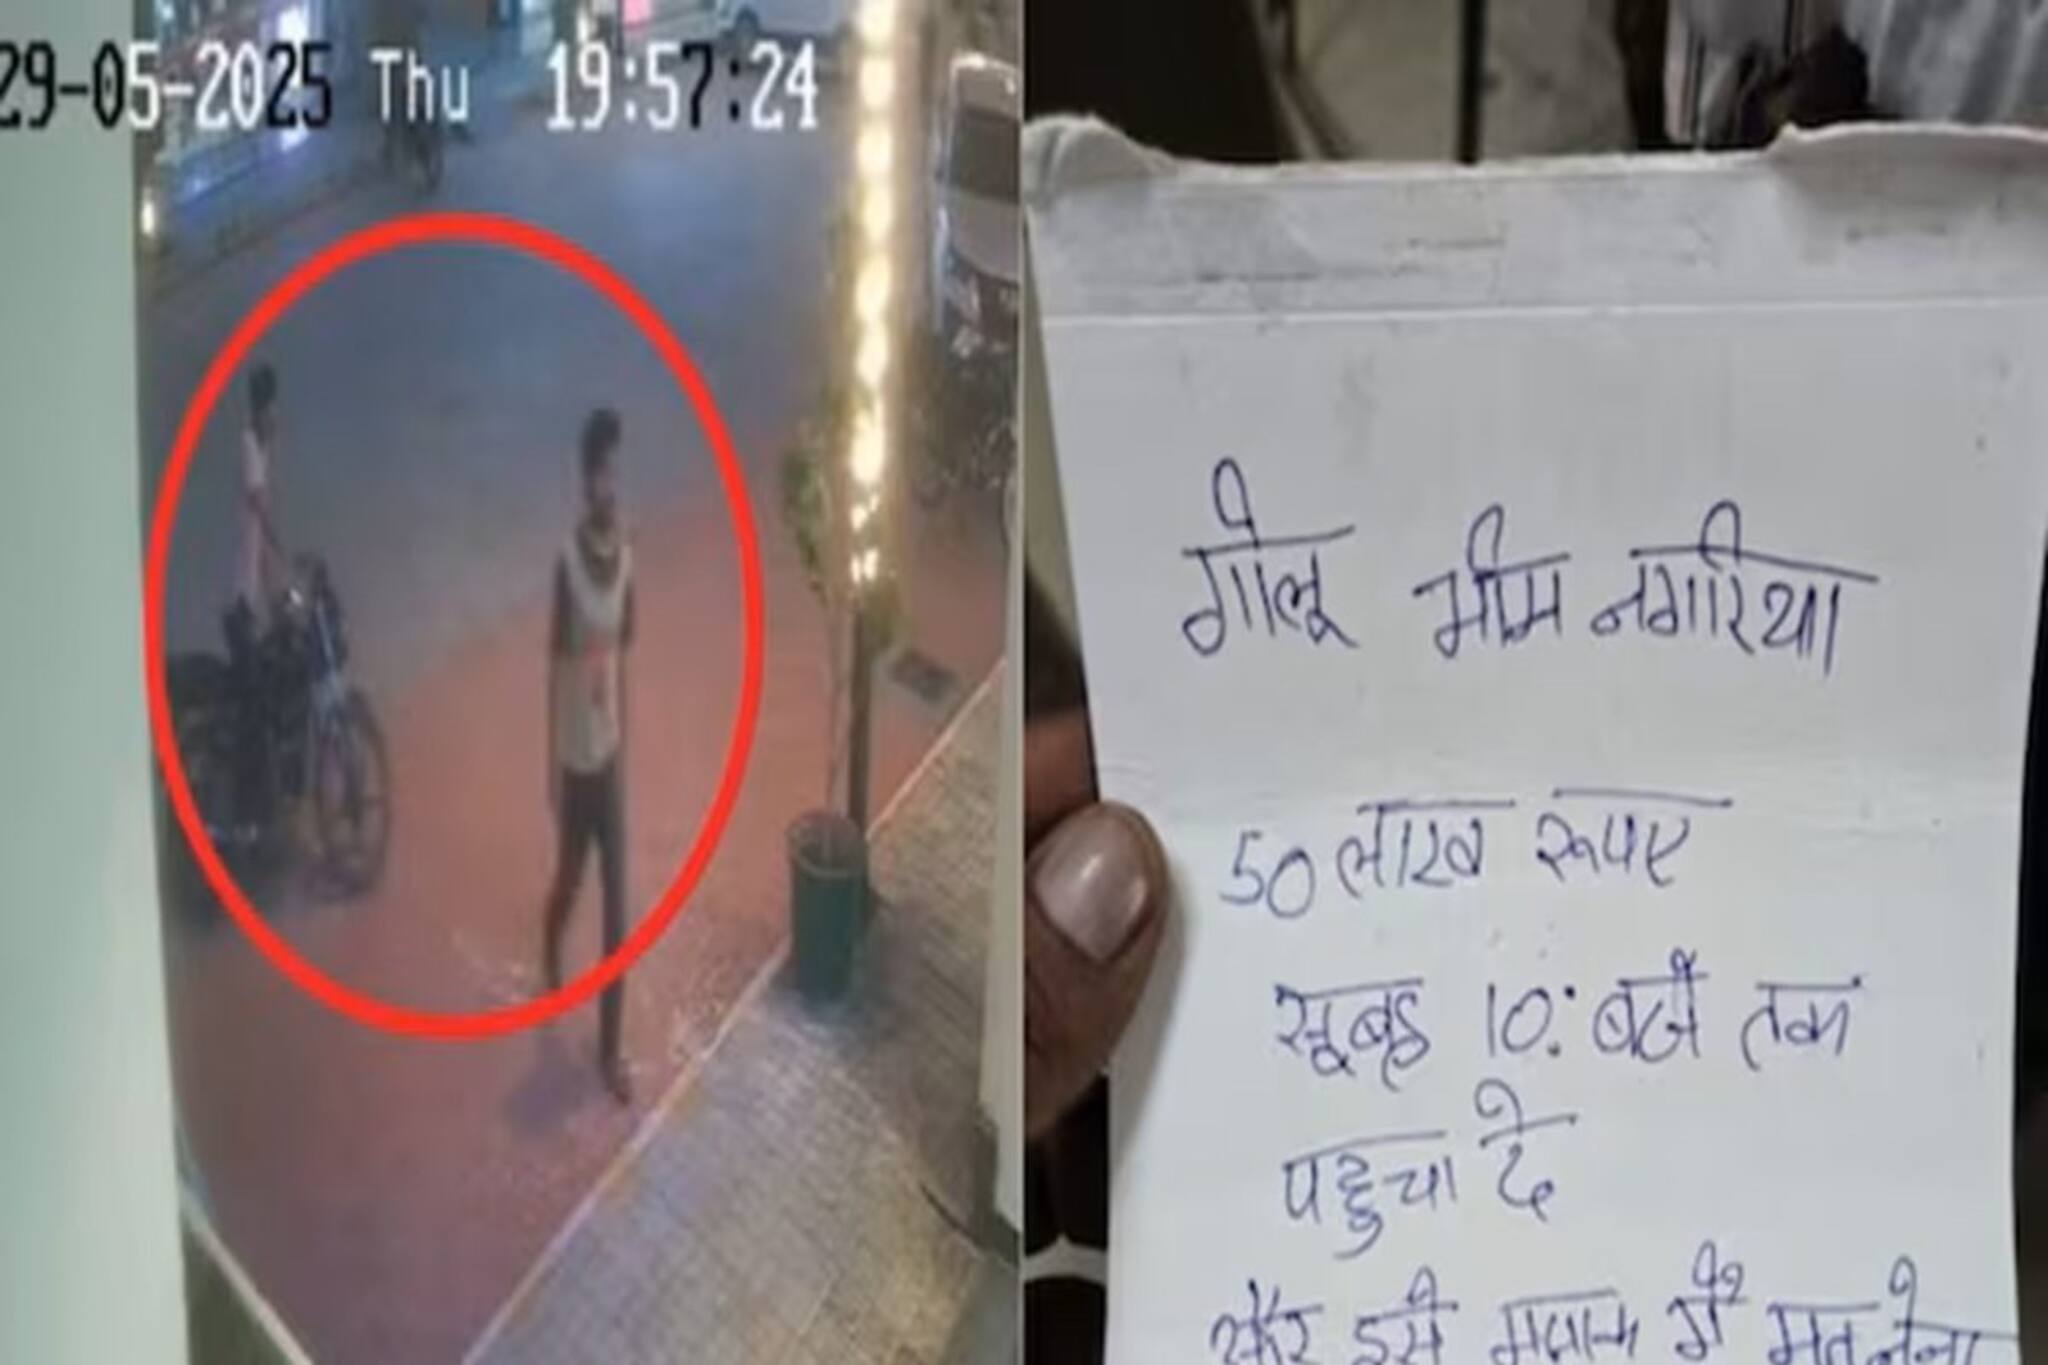 29-05-2025 Thu 19:57:24
गोलू मीम नगरिया
50 लाख रूपए
सूबह 10: बजे तक
पहुचा दे
और इसे मजाक में मत लेना